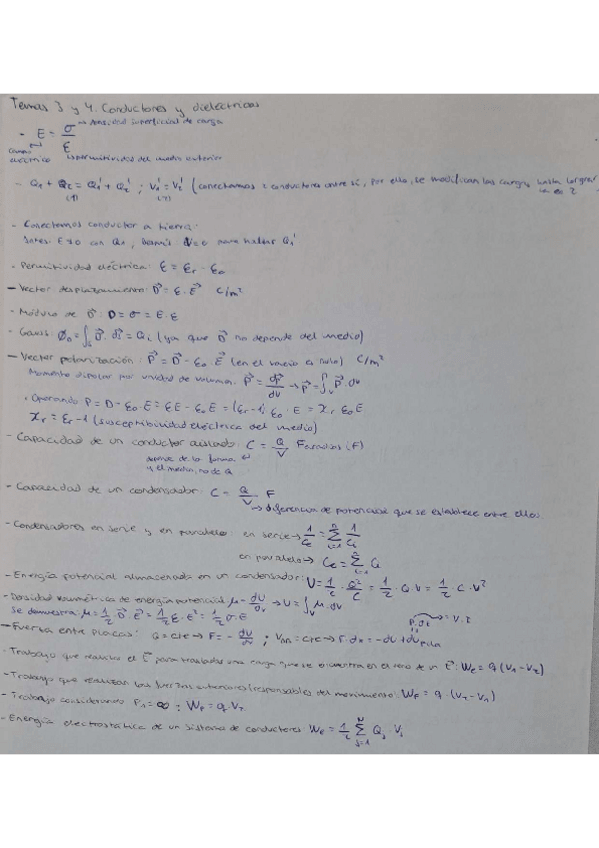 Temas 3 y 4. Conductores y dieléctricos
- E = σ/ε → densidad superficial de carga
campo eléctrico permitividad del medio exterior
- Q₁ + Q₂ = Q₁' + Q₂' ; V₁' = V₂' (conectamos 2 conductores entre sí, por ello, se modifican las cargas hasta
(1) (2)
- Conectamos conductor a tierra:
Antes: E≠0 con Q₀, Después: V=0 para hallar Q₁'
- Permitividad eléctrica: ε = εr · ε₀
- Vector desplazamiento: D⃗ = ε · E⃗ C/m²
- Módulo de D⃗: D = σ = E · ε
- Gauss: Ø₀ = ∫ₛ D⃗ · ds⃗ = Qᵢ (ya que D⃗ no depende del medio)
- Vector polarización: P⃗ = D⃗ - ε₀ · E⃗ (en el vacío es nulo) C/m²
Momento dipolar por unidad de volumen: P⃗ = dp⃗/dv → p⃗ = ∫ᵥ P⃗ · dv
· Operando: P = D - ε₀ · E = εE - ε₀E = (εr - 1) ε₀ · E = χr ε₀E
χr = εr - 1 (susceptibilidad eléctrica del medio)
- Capacidad de un conductor aislado: C = Q/V Faradios (F)
depende de la forma
y el medio, no de Q
- Capacidad de un condensador: C = Q/V F
→ diferencia de potencial que se establece entre ellos
- Condensadores en serie y en paralelo: en serie → 1/Cₑ = Σⁿᵢ₌₁ 1/Cᵢ
en paralelo → Cₑ = Σⁿᵢ₌₁ Cᵢ
- Energía potencial almacenada en un condensador: U = 1/2 · Q²/C = 1/2 · Q · V = 1/2 C · V²
- Densidad volumétrica de energía potencial: μ = dU/dv → U = ∫ᵥ μ · dv
se demuestra: μ = 1/2 D⃗ · E⃗ = 1/2 ε · E² = 1/2 σ · E
- Fuerza entre placas: Q = cte → F = - dU/dx ; V = cte → F · dx = -dU + dU pila
- Trabajo que realiza el E⃗ para trasladar una carga que se encuentra en el seno de un E⃗: Wₑ = q (V₁ - V₂)
- Trabajo que realizan las fuerzas exteriores (responsables del movimiento): W_F = q · (V₂ - V₁)
- Trabajo considerando P₁ = ∞ ; W_F = q · V₂
- Energía electrostática de un sistema de conductores: Wₑ = 1/2 Σᴺⱼ₌₁ Qⱼ · Vⱼ